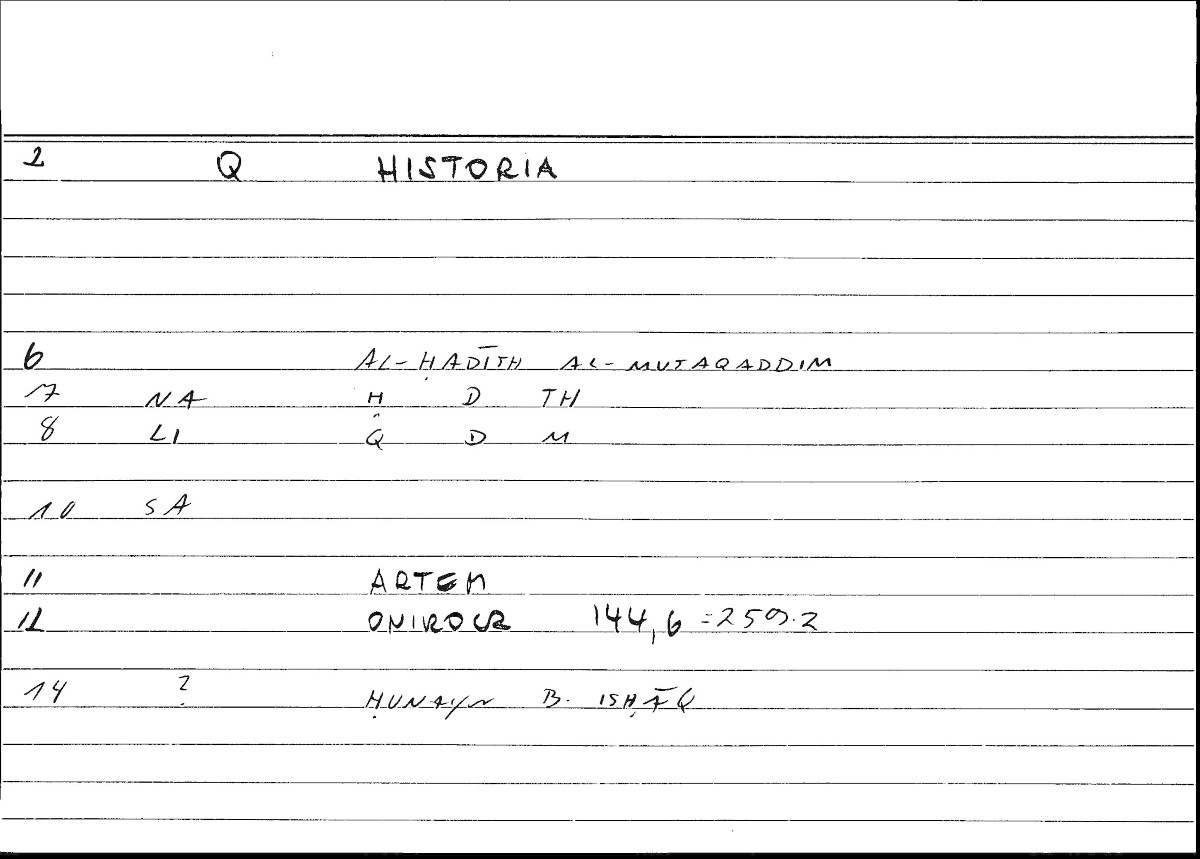 2 Q HISTORIA
6 AL-ḤADĪTH AL-MUTAQADDIM
7 NA Ḥ D TH
8 LI Q D M
10 SA
11 ARTEM
12 ONIROCR 144,6 =259.2
14 ? ḤUNAYN B. ISḤĀQ